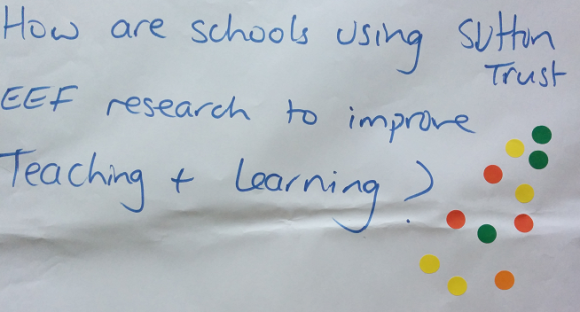 How are schools using Sutton
Trust
EEF research to improve
Teaching + Learning?